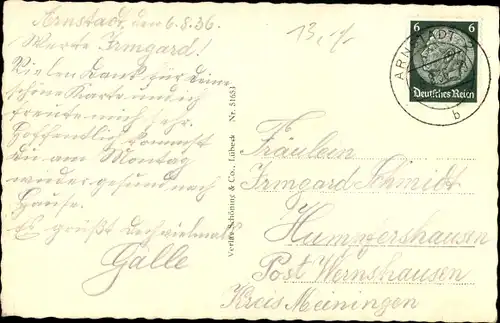 Arnstadt, den 6.8.36.
Werte Irmgard!
Vielen Dank für Deine
schöne Karte und ich
freute mich sehr.
Hoffentlich kommst
Du am Montag
wieder gesund nach
Hause.
Es grüßt Dich vielmals
Galle
13,-/-
Verlag Schöning & Co., Lübeck Nr. 51651
6 6
Deutsches Reich
ARNSTADT
b
Fräulein
Irmgard Schmidt
Humpfershausen
Post Wernshausen
Kreis Meiningen